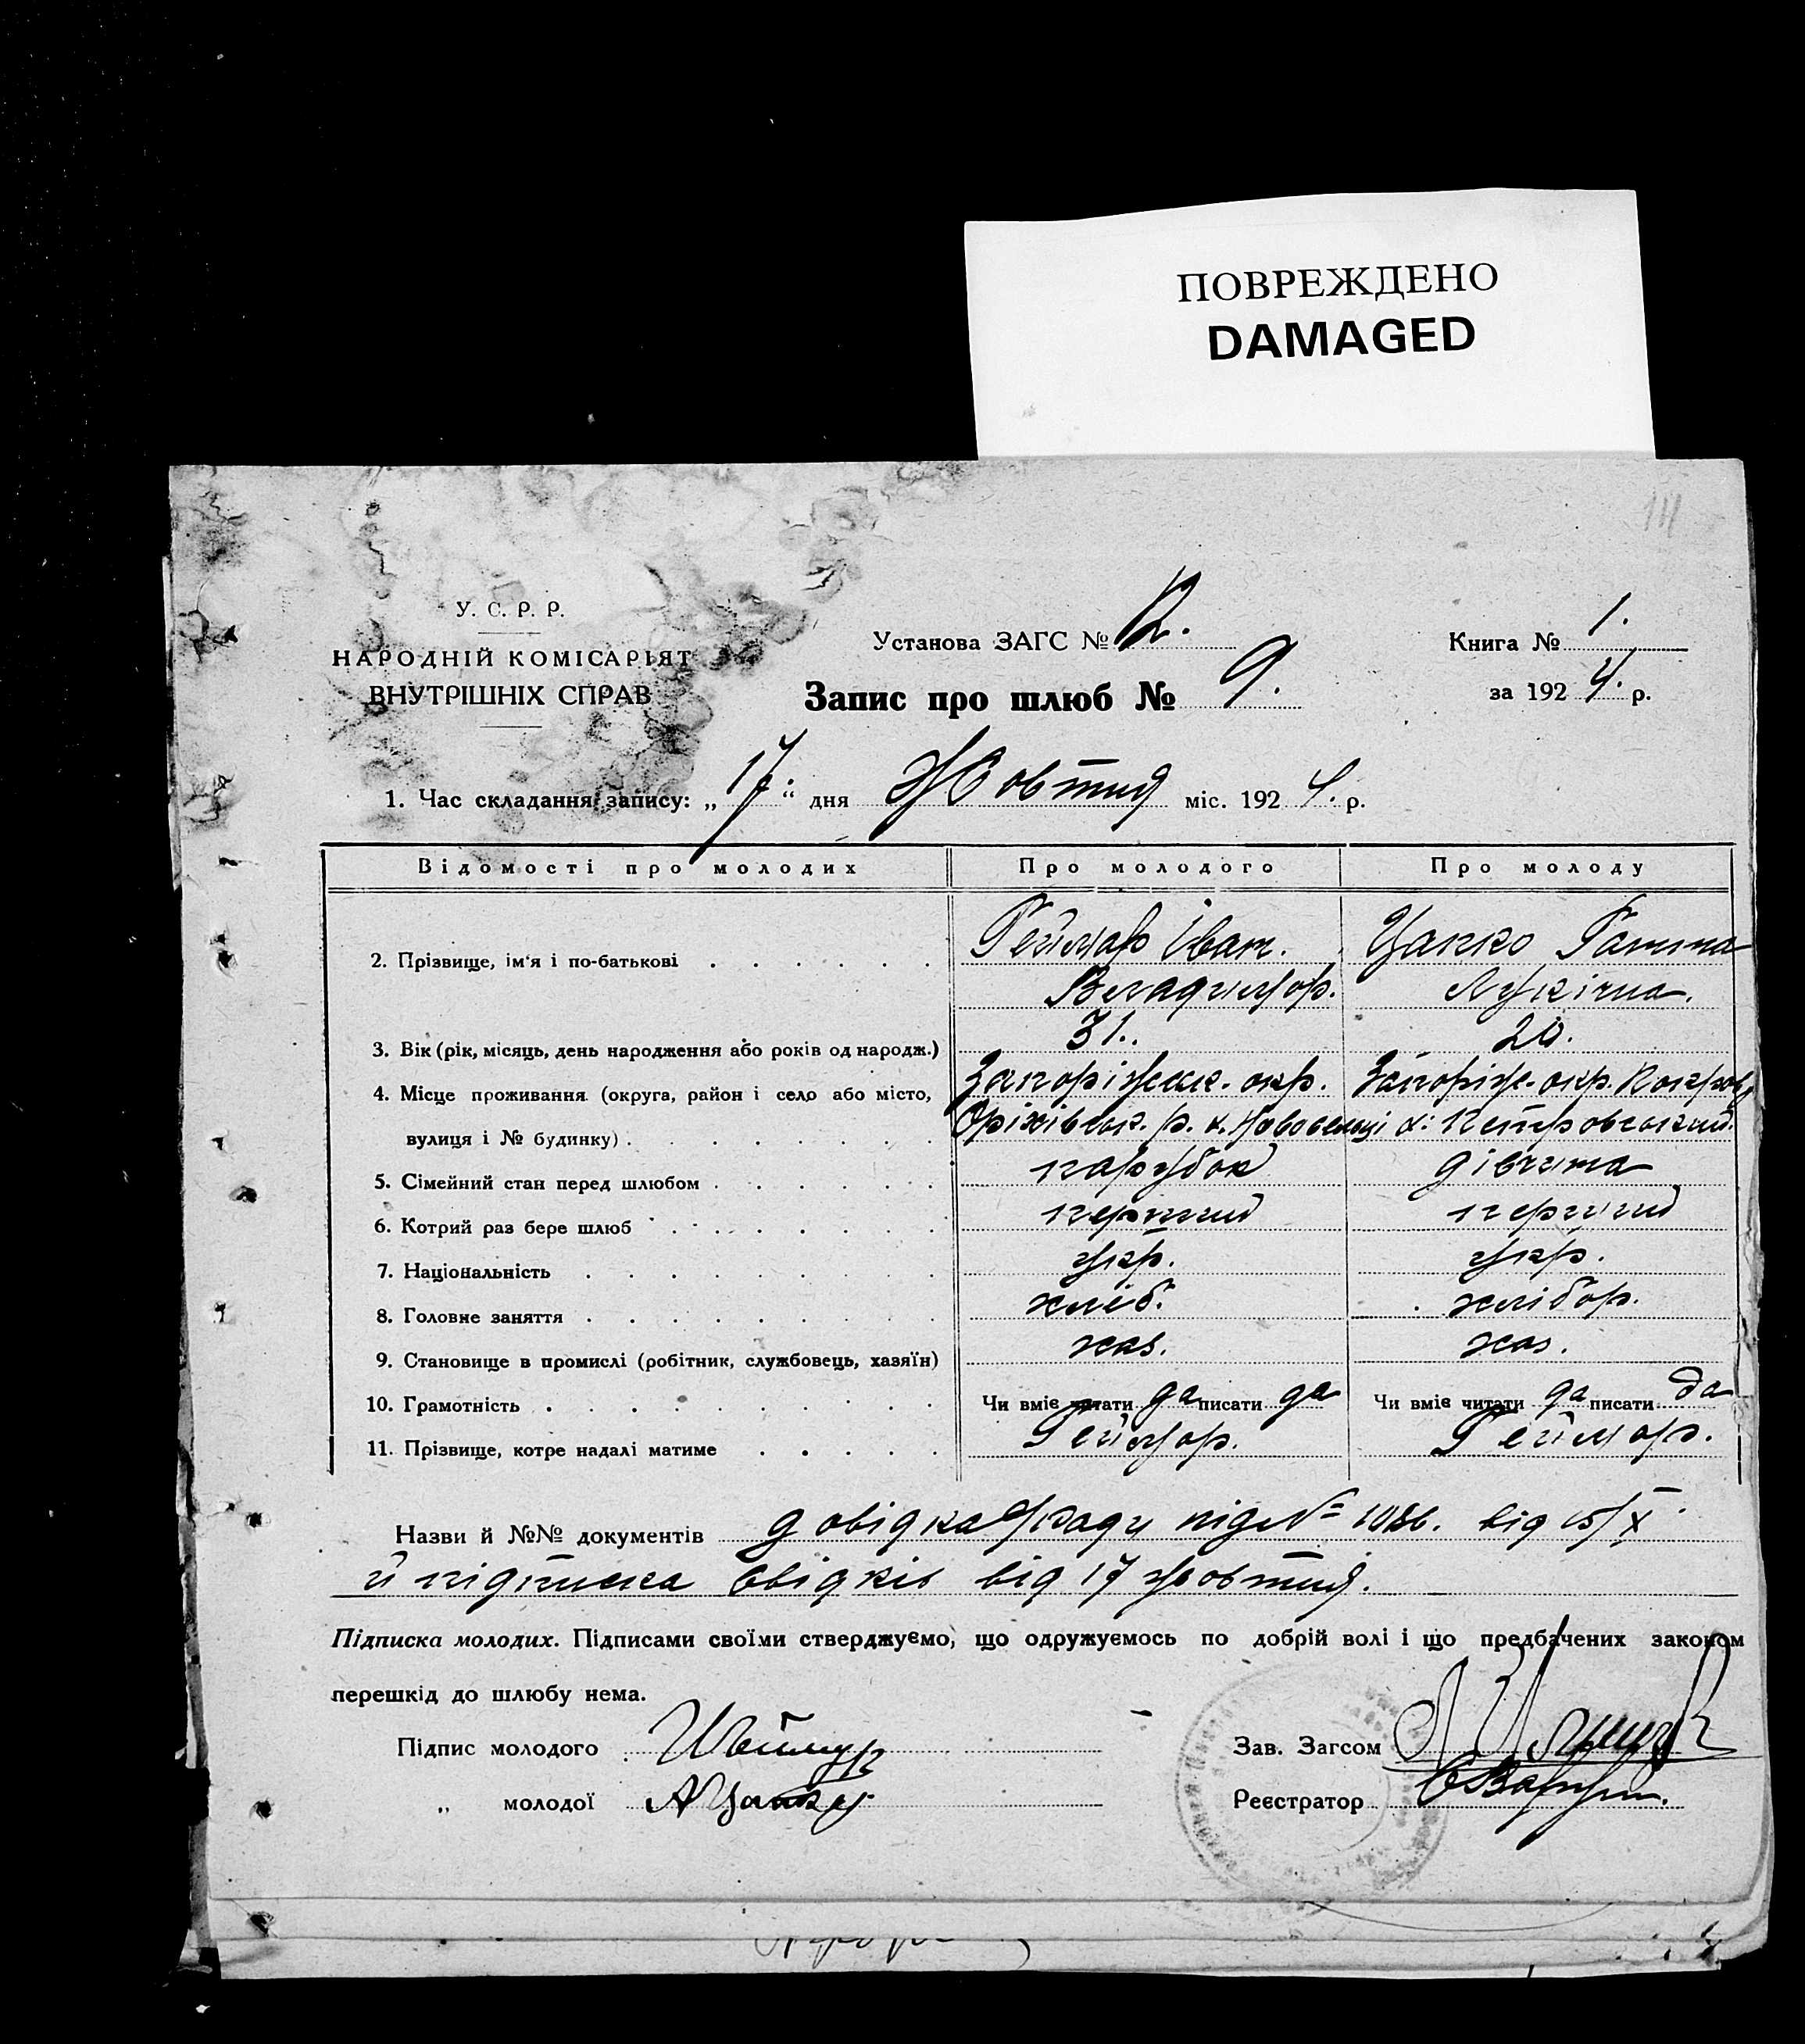 ПОВРЕЖДЕНО
DAMAGED
111
У. С. Р. Р.
НАРОДНІЙ КОМІСАРІЯТ
ВНУТРІШНІХ СПРАВ
Установа ЗАГС № 12.
Книга № 1.
Запис про шлюб № 9.
за 1924. р.
1. Час складання запису: „17“ дня Жовтня міс. 1924. р.
Відомості про молодих Про молодого Про молоду
2. Прізвище, ім'я і по-батькові Геймор Іван. Цапко Ганна
Владимор. Лукічна.
3. Вік (рік, місяць, день народження або років од народж.) 31. 20.
4. Місце проживання (округа, район і село або місто, Запоріжск. окр. Запоріж. окр. Покров.
вулиця і № будинку) Оріхівськ. р. х. Новоселиці х. Петровський.
5. Сімейний стан перед шлюбом парубок дівчина
6. Котрий раз бере шлюб перший перший
7. Національність укр. укр.
8. Головне заняття хліб. хлібор.
9. Становище в промислі (робітник, службовець, хазяїн) хаз. хаз.
10. Грамотність Чи вміє читати да писати да Чи вміє читати да писати да
11. Прізвище, котре надалі матиме Геймор. Геймор.
Назви й №№ документів довідка с/ради під № 1086. від 15/X
й підписка свідків від 17 жовтня.
Підписка молодих. Підписами своїми стверджуємо, що одружуємось по добрій волі і що предбачених законом
перешкід до шлюбу нема.
Підпис молодого
Зав. Загсом
„ молодої А Цапко
Реєстратор